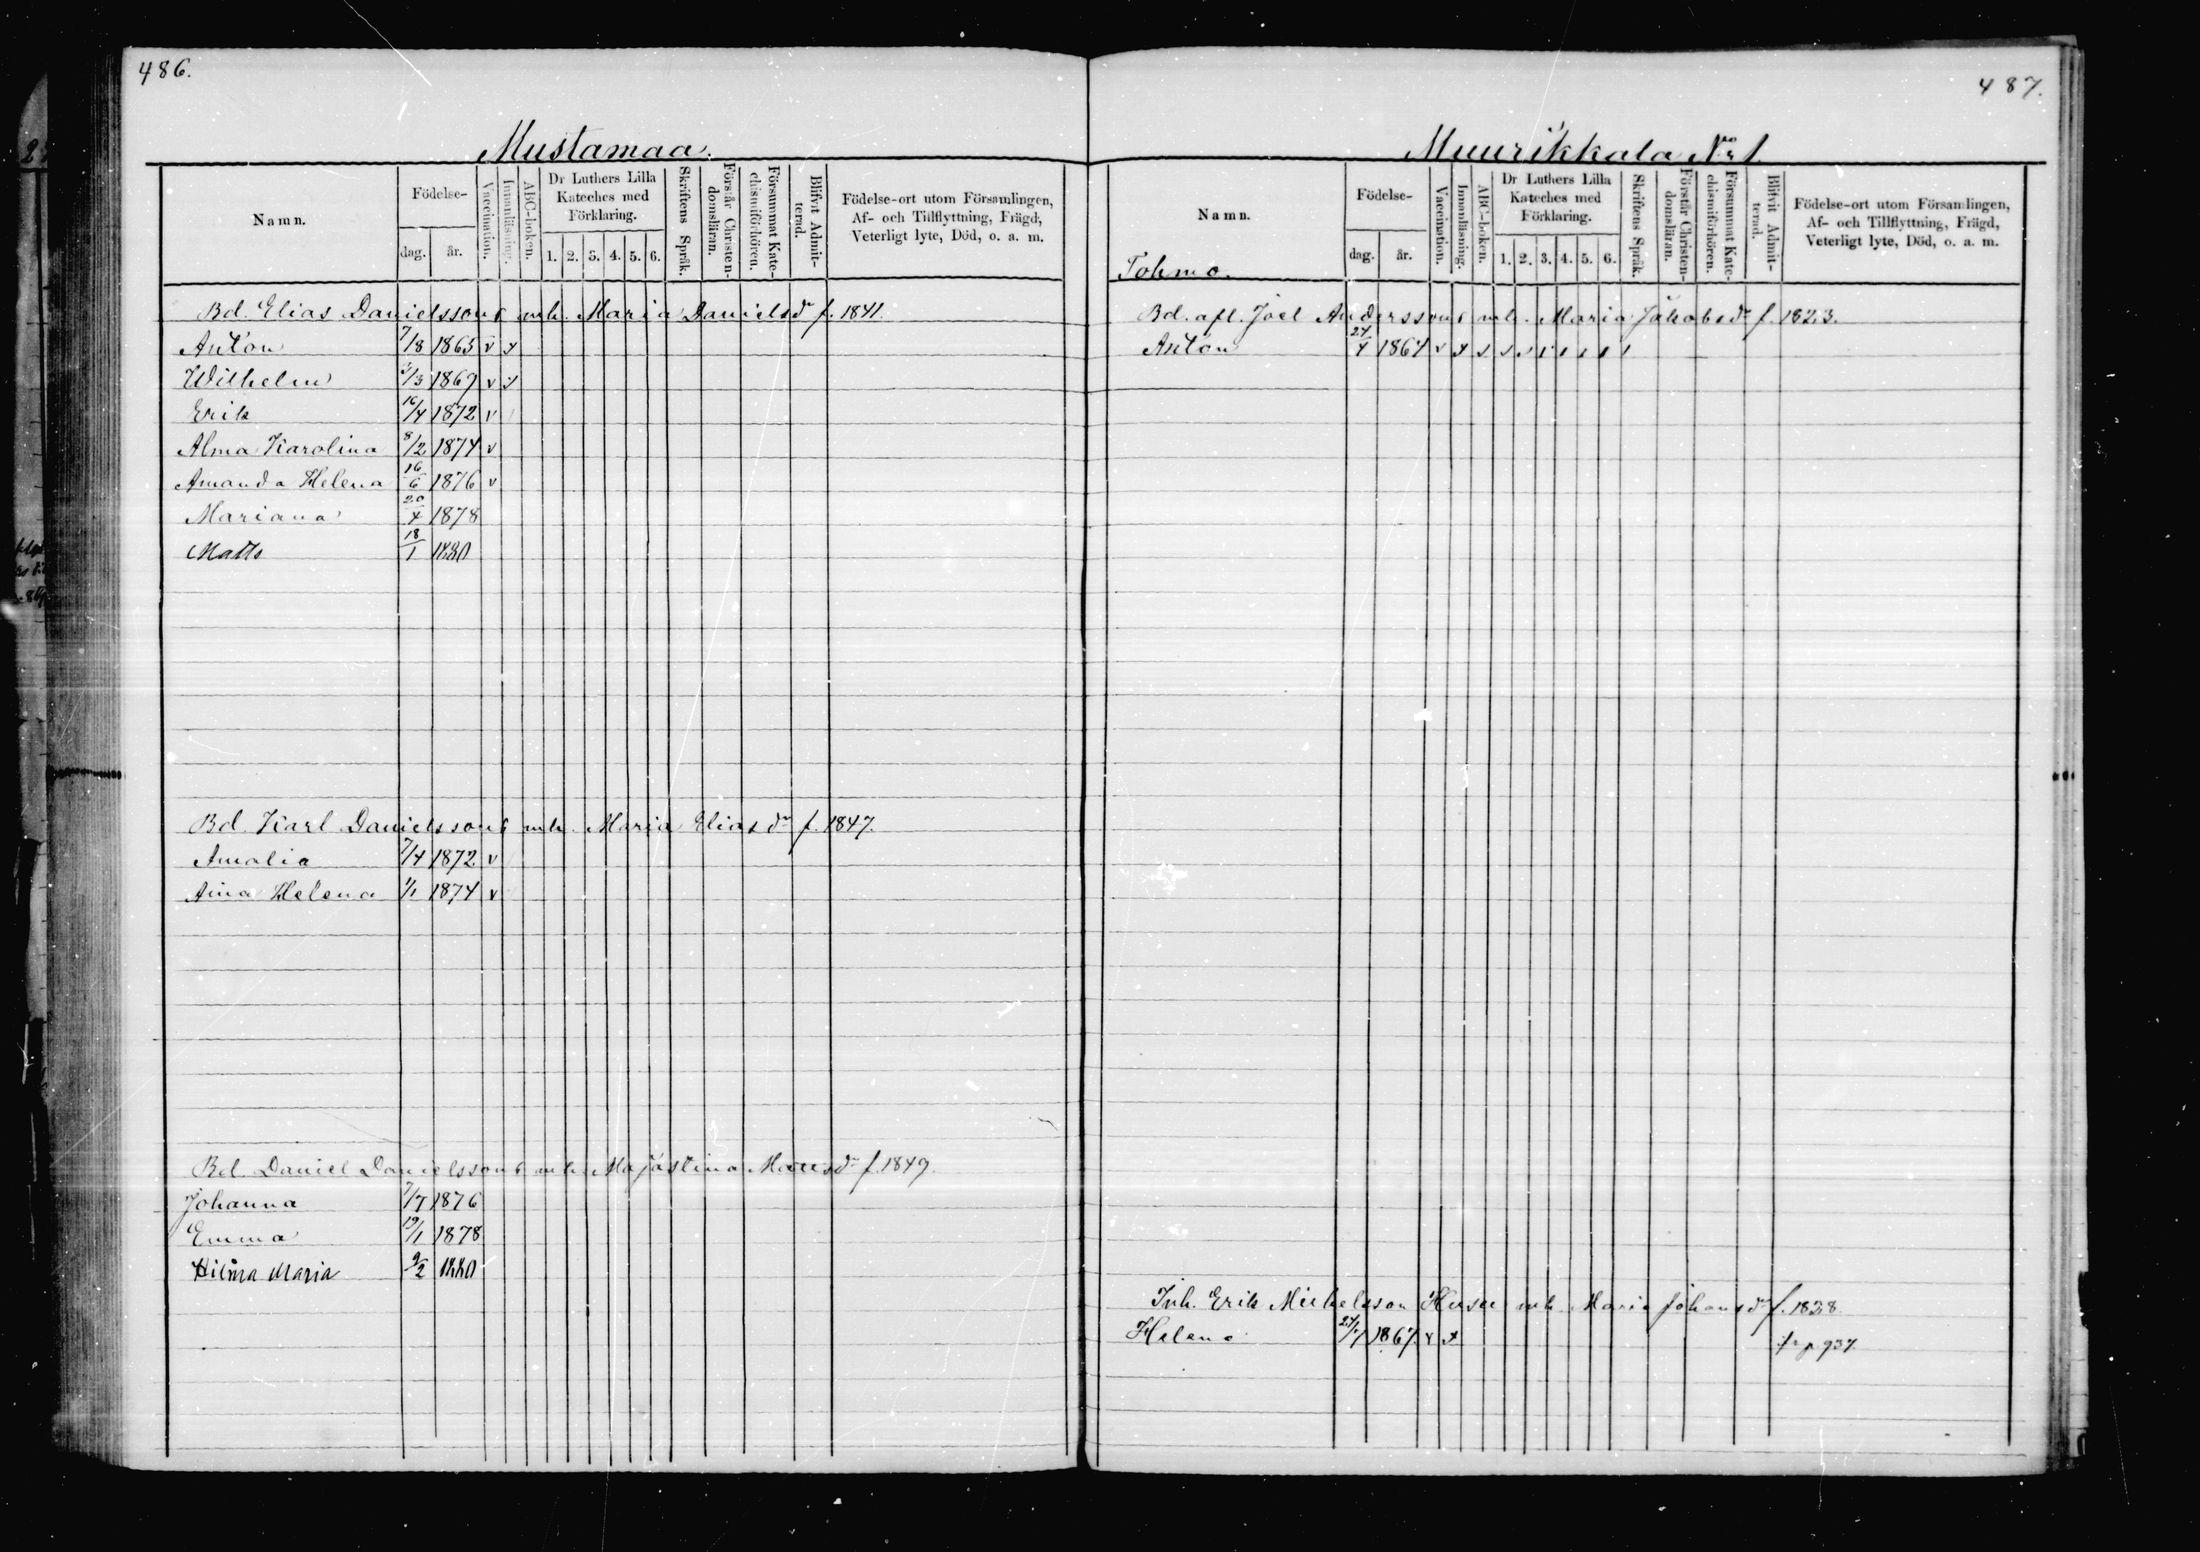 486.
Mustamaa.
Namn.
Födelse-
dag.
år.
Vaccination.
Innanläsning.
ABC-boken.
Dr Luthers Lilla
Kateches med
Förklaring.
1. 2. 3. 4. 5. 6.
Skriftens Språk.
Förstår Christen-
domsläran.
Försummat Kate-
chismiförhören.
Blifvit Admit-
terad.
Födelse-ort utom Församlingen,
Af- och Tillflyttning, Frägd,
Veterligt lyte, Död, o. a. m.
Bd. Elias Danielssons mh. Maria Danielsdr f. 1841.
Anton 7/8 1865 v x
Wilhelm 3/3 1869 v x
Erik 16/4 1872 v
Alma Karolina 8/2 1874 v
Amanda Helena 16/6 1876 v
Mariana 20/4 1878
Matts 18/1 1880
Bd. Karl Danielssons mh. Maria Eliasdr f. 1847.
Amalia 7/4 1872 v
Aina Helena 1/1 1874 v
Bd. Daniel Danielssons mh. Majastina Mattsdr f. 1849.
Johanna 7/7 1876
Emma 19/1 1878
Hilma Maria 9/2 1880
487.
Muurikkala No 1
Namn.
Tohmo.
Födelse-
dag.
år.
Vaccination.
Innanläsning.
ABC-boken.
Dr Luthers Lilla
Kateches med
Förklaring.
1. 2. 3. 4. 5. 6.
Skriftens Språk.
Förstår Christen-
domsläran.
Försummat Kate-
chismiförhören.
Blifvit Admit-
terad.
Födelse-ort utom Församlingen,
Af- och Tillflyttning, Frägd,
Veterligt lyte, Död, o. a. m.
Bd. afl. Joel Anderssons mh. Maria Jakobsdr f. 1823.
Anton 24/4 1864 v x
Inh. Erik Michelsson mh. Maria Johansdr f. 1828.
Helena 1867 v x p 937